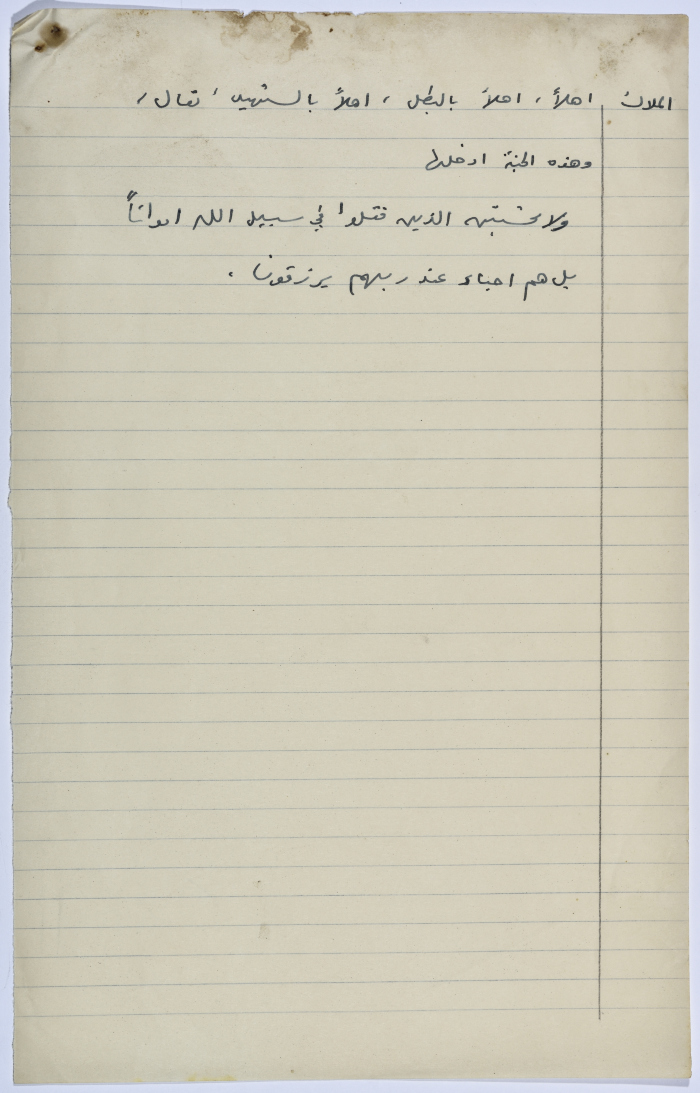 الملاك اهلاً، اهلاً بالبطل، اهلاً بالشهيد، تعال،
وهذه الجنة ادخلها
ولا تحسبن الذين قتلوا في سبيل الله امواتاً
بل هم احياء عند ربهم يرزقونا.